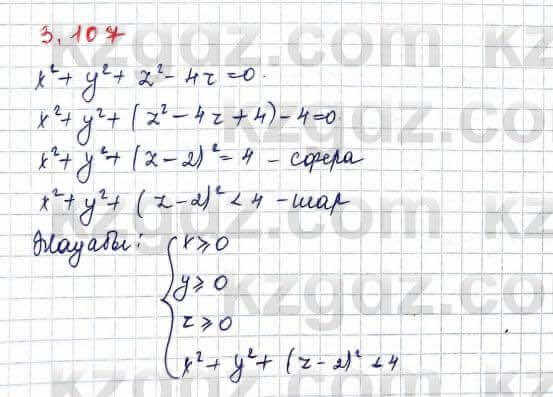 3.107
x²+ y²+ z²- 4z =0.
x²+ y²+ (z²- 4z + 4) - 4=0.
x²+ y²+ (z - 2)²= 4 - сфера
x²+ y²+ (z - 2)² < 4 - шар
Жауабы: { x ⩾ 0
y ⩾ 0
z ⩾ 0
x²+ y²+ (z - 2)² < 4
kzgdz.com